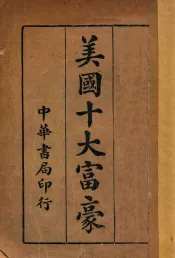 美國十大富豪
中華書局印行